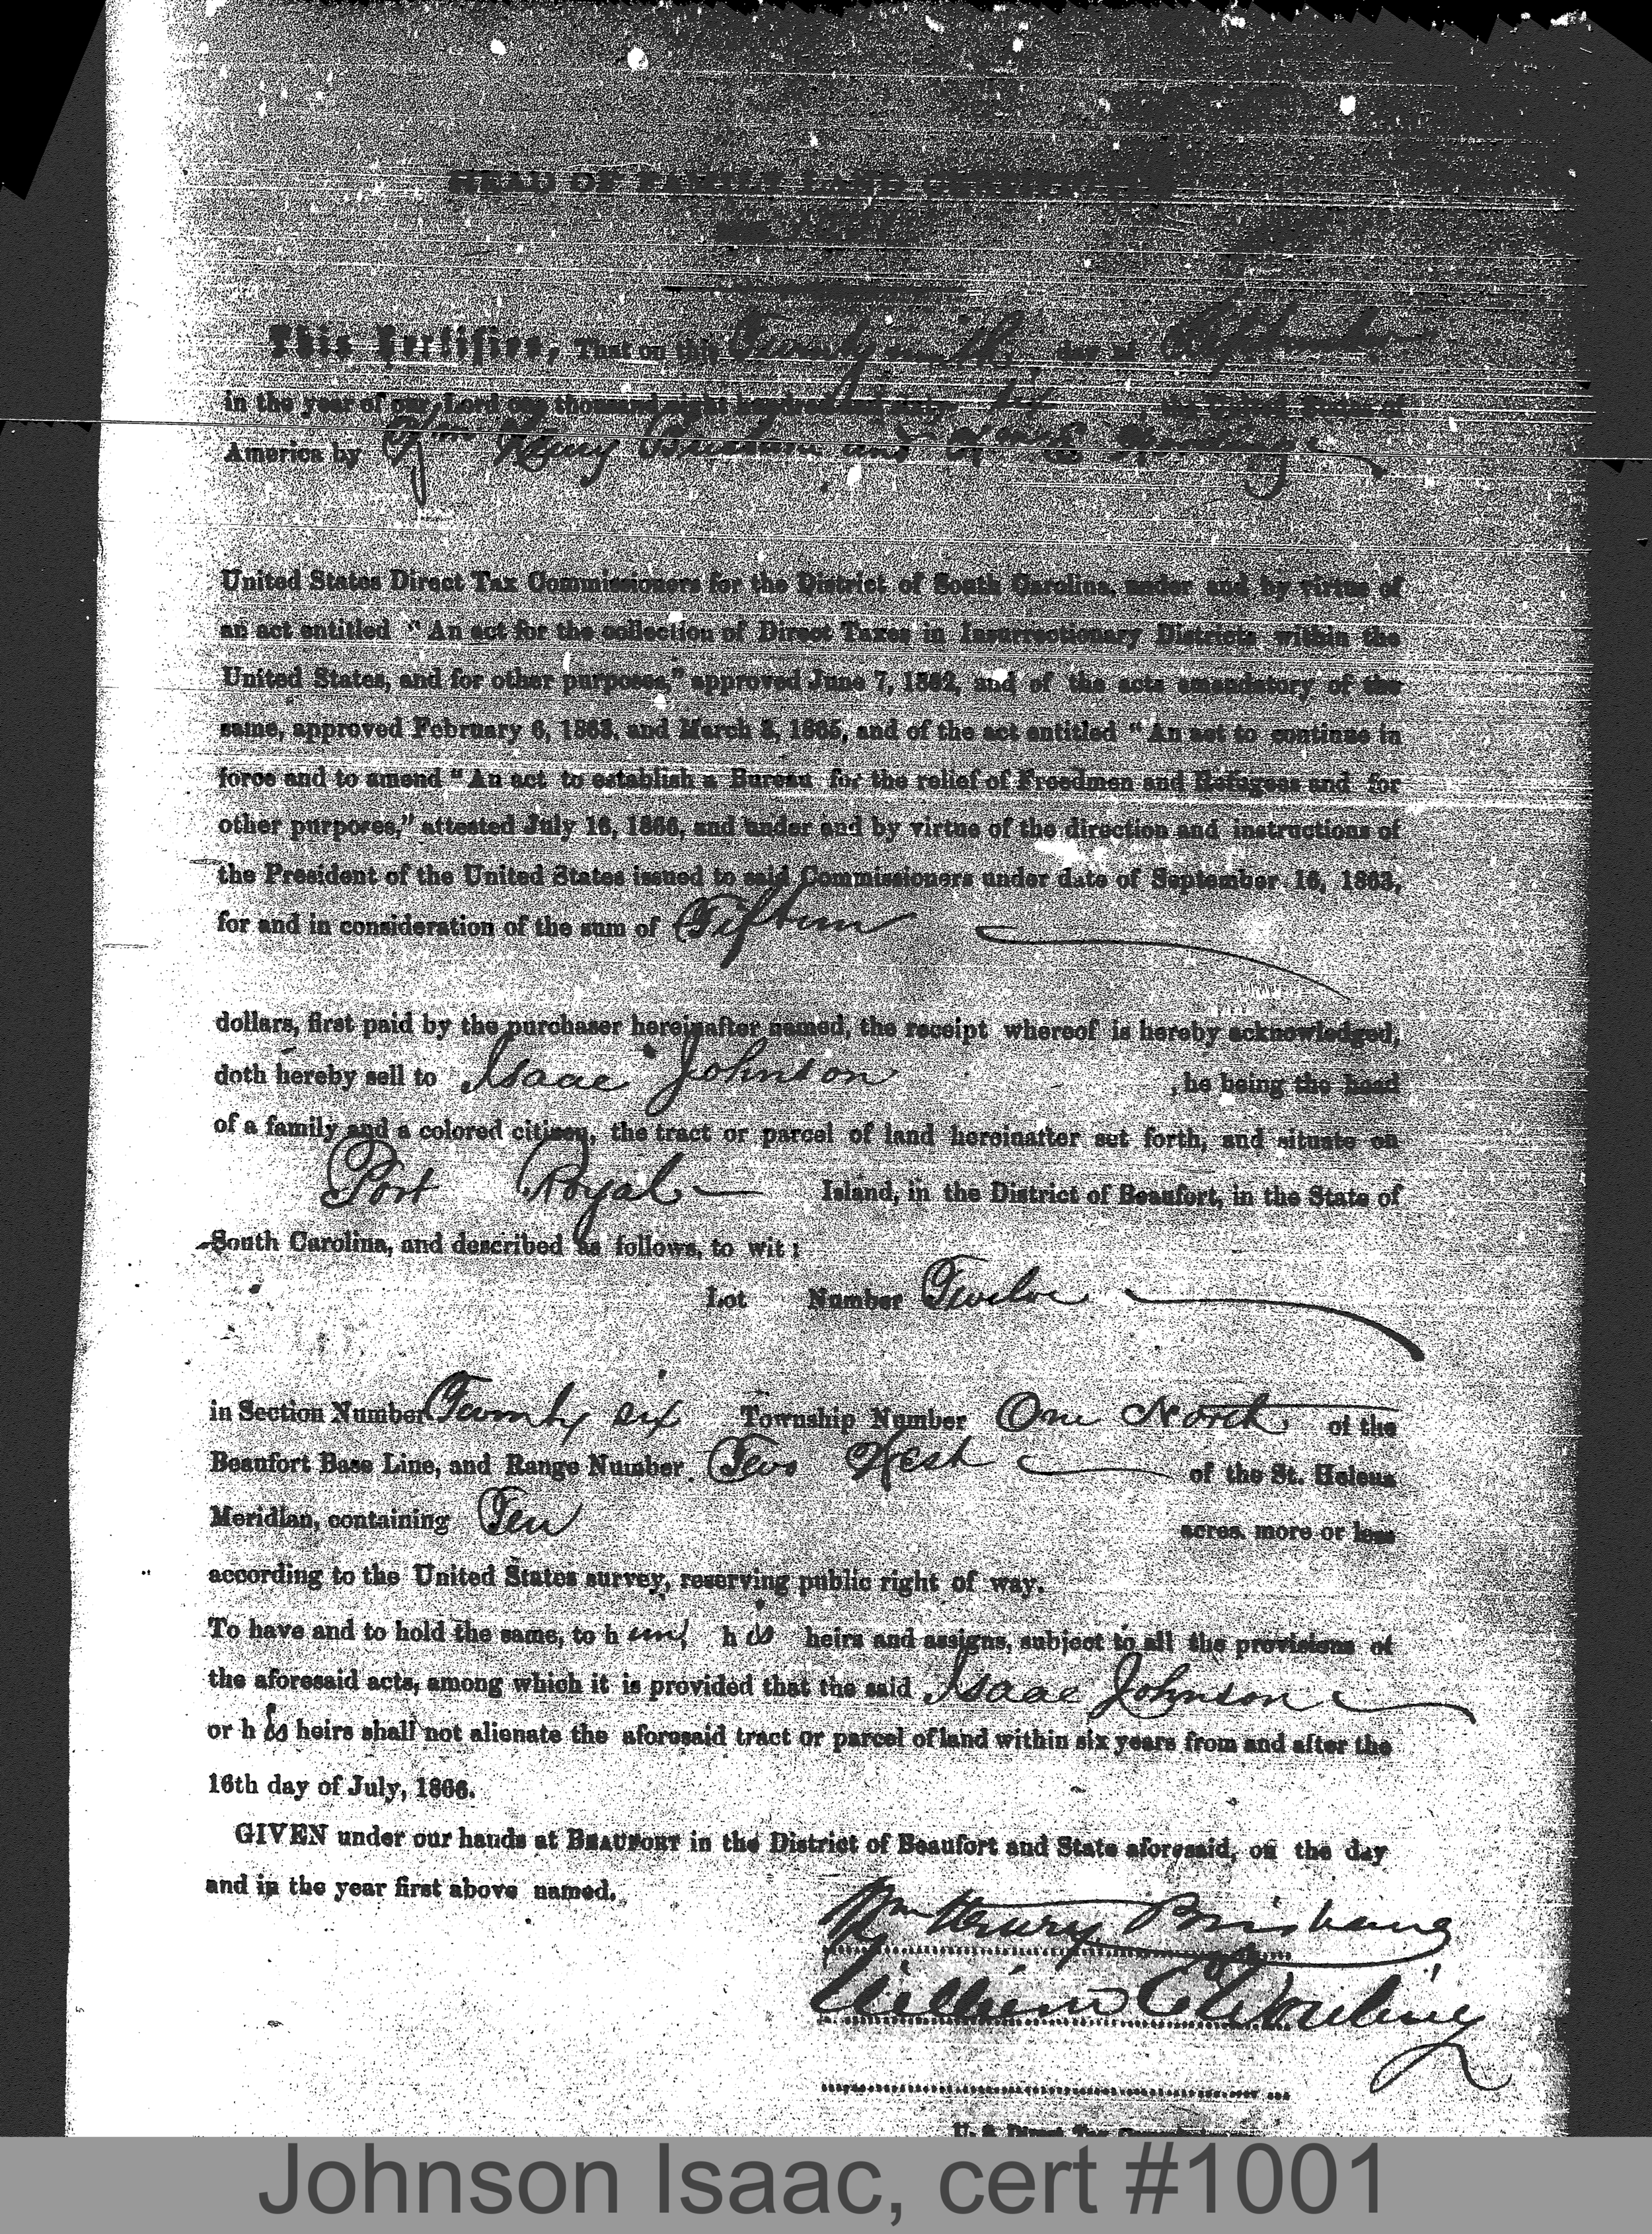 HEAD OF FAMILY LAND CERTIFICATE
This Certifies, That on this Twenty ninth day of September
in the year of our Lord one thousand eight hundred and sixty six the United States of
America by Wm Henry Brisbane and Wm E Wording
United States Direct Tax Commissioners for the District of South Carolina, under and by virtue of
an act entitled "An act for the collection of Direct Taxes in Insurrectionary Districts within the
United States, and for other purposes," approved June 7, 1862, and of the acts amendatory of the
same, approved February 6, 1863, and March 3, 1865, and of the act entitled "An act to continue in
force and to amend "An act to establish a Bureau for the relief of Freedmen and Refugees and for
other purposes," attested July 16, 1866, and under and by virtue of the direction and instructions of
the President of the United States issued to said Commissioners under date of September 16, 1863,
for and in consideration of the sum of Fifteen
dollars, first paid by the purchaser hereinafter named, the receipt whereof is hereby acknowledged,
doth hereby sell to Isaac Johnson , he being the head
of a family and a colored citizen, the tract or parcel of land hereinafter set forth, and situate on
Port Royal Island, in the District of Beaufort, in the State of
South Carolina, and described as follows, to wit:
Lot Number Twelve
in Section Number Twenty six Township Number One North of the
Beaufort Base Line, and Range Number Two West of the St. Helena
Meridian, containing Ten acres, more or less
according to the United States survey, reserving public right of way.
To have and to hold the same, to him, his heirs and assigns, subject to all the provisions of
the aforesaid acts, among which it is provided that the said Isaac Johnson
or his heirs shall not alienate the aforesaid tract or parcel of land within six years from and after the
16th day of July, 1866.
GIVEN under our hands at BEAUFORT in the District of Beaufort and State aforesaid, on the day
and in the year first above named.
Wm Henry Brisbane
William E Wording
U. S. Direct Tax
Johnson Isaac, cert #1001